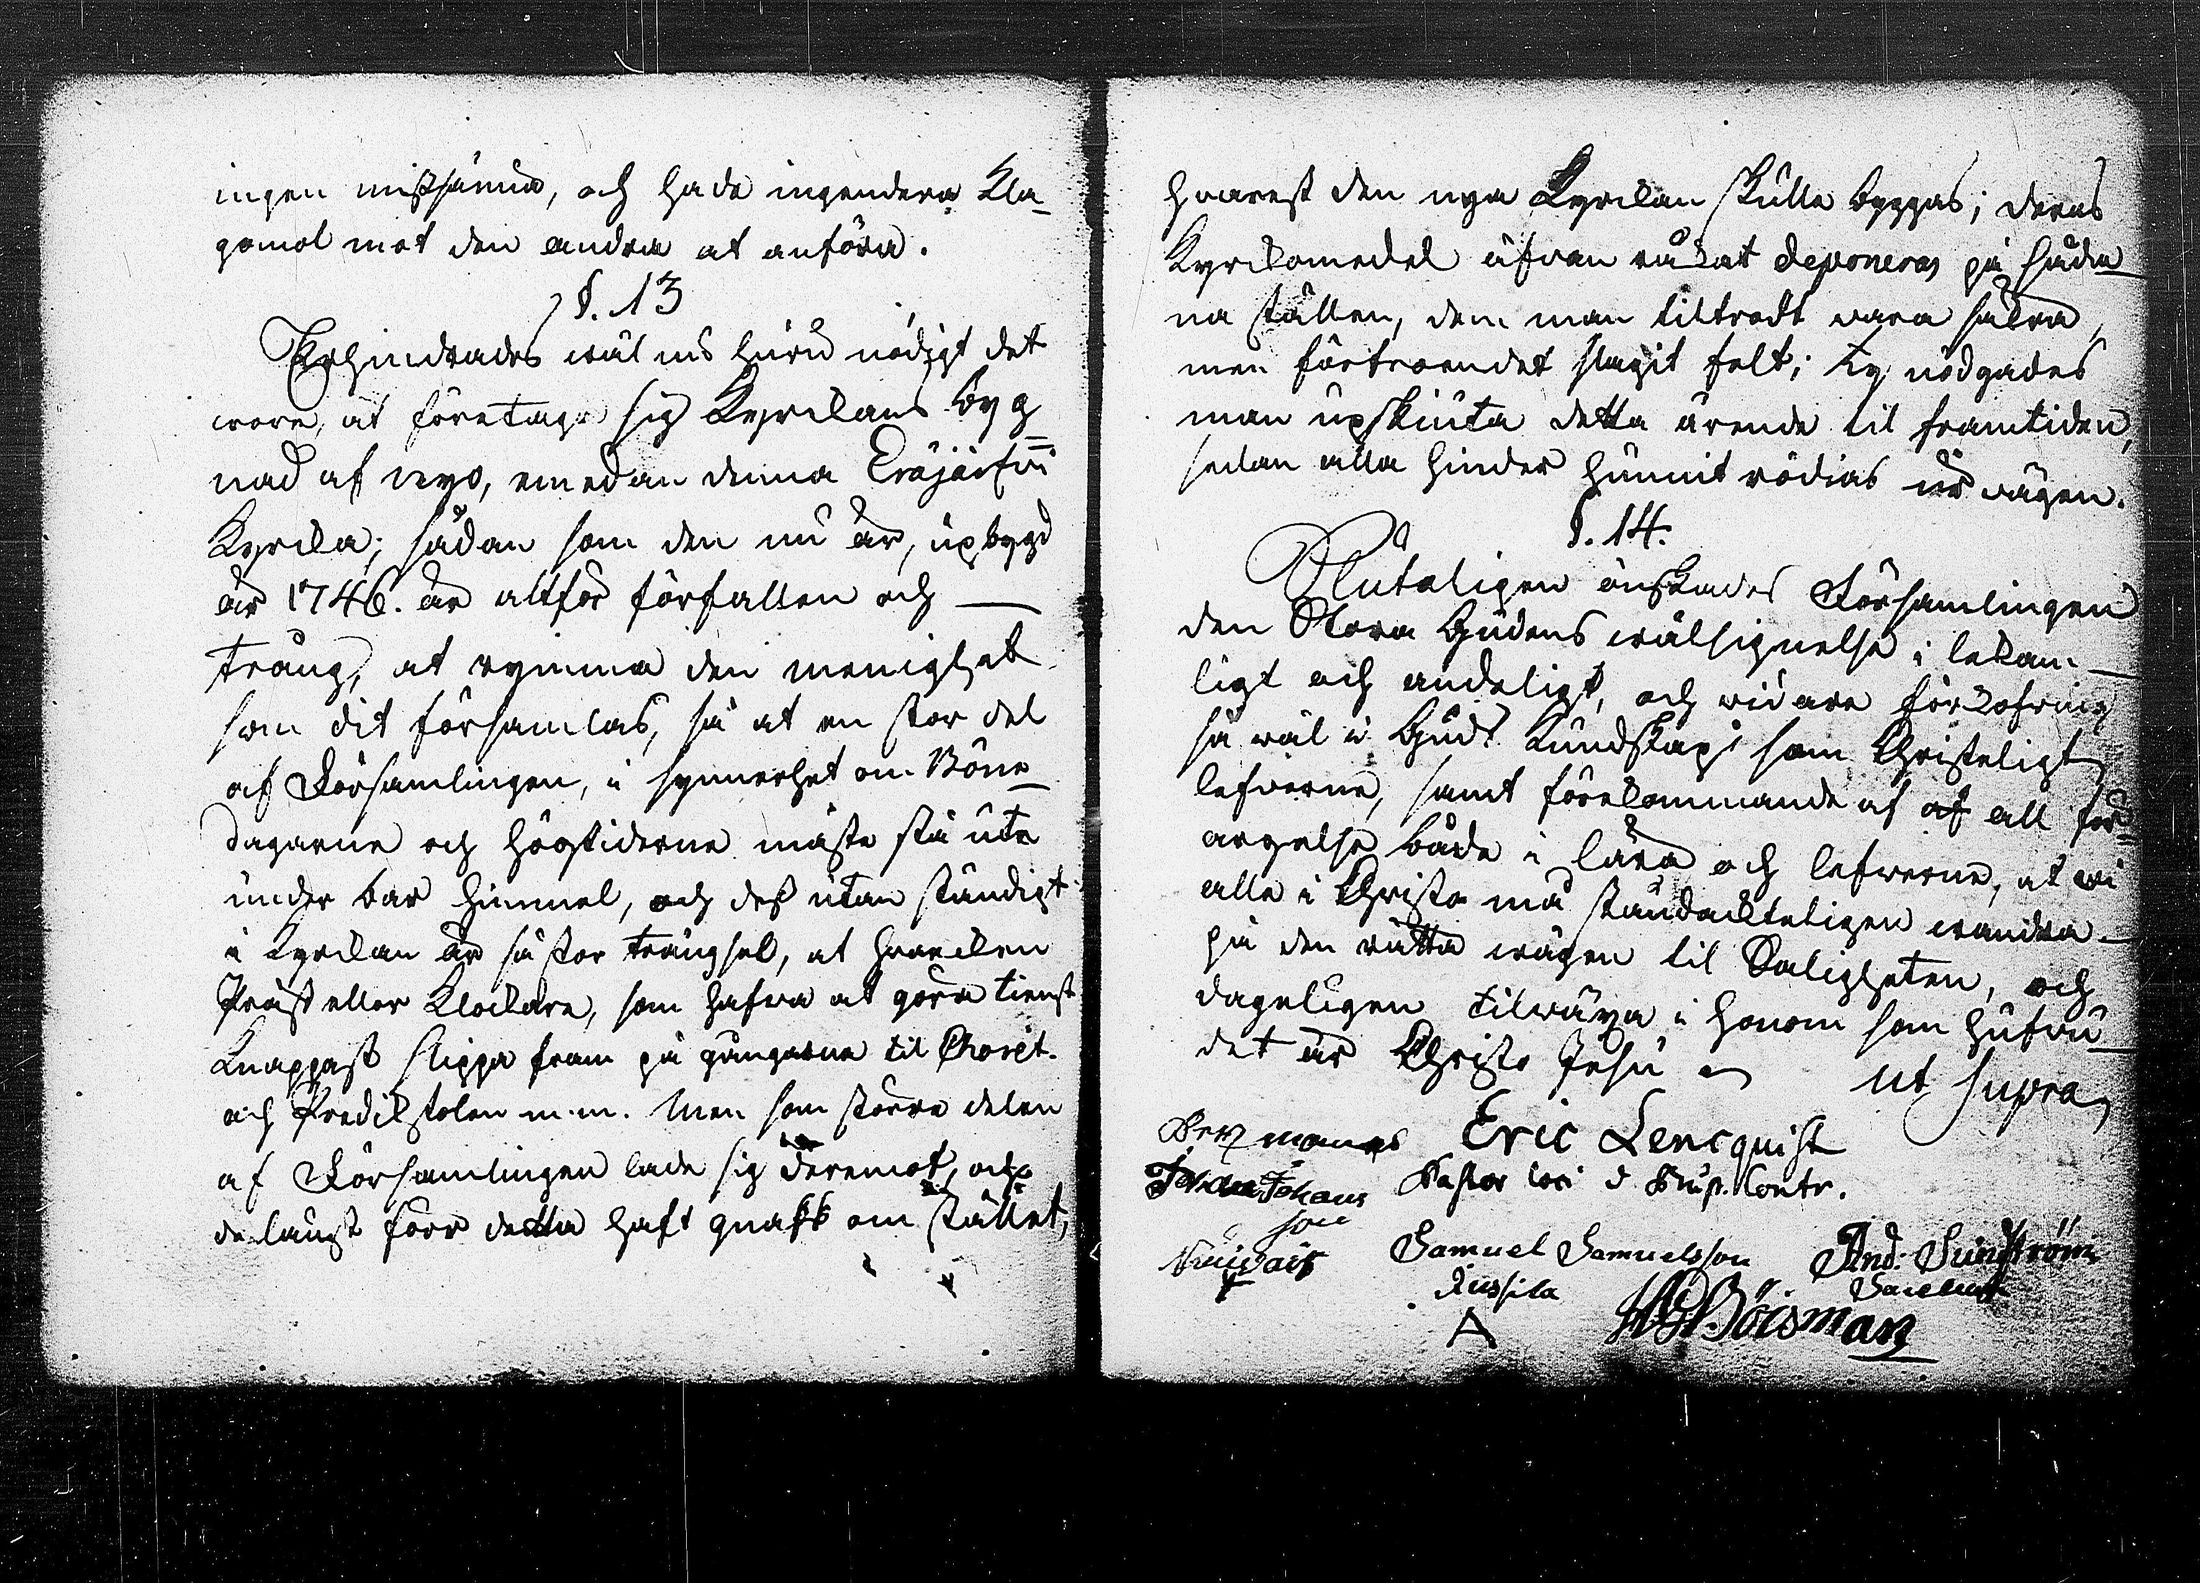 ingen missämia, och hade ingendera kla-
gomol mot den andra at anföra.
§. 13
Erhindrades wäl nu huru nödigt det
wore, at företaga sig Kyrckans byg
nad af nyo, emedan denna Eräjärfwi
Kyrcka; sådan som den nu är, upbygd
år 1746. är altför förfallen och
trång, at rymma den menighet
som dit församlas, så at en stor del
af Församlingen, i synnerhet om Böne-
dagarne och högtiderne måste stå ute
under bar himmel, och dess utan ständigt
i Kyrckan är så stor trängsel, at hwarcken
Präst eller Klockare, som hafwa at göra tienst
Knappast slippa fram på gångarne til Choret.
och Predikstolen m.m. Men som större delen
af Församlingen lade sig deremot, och
de längst förr detta haft gnabb om stället,
hwarest den nya Kyrckan skulle byggas; deras
Kyrckomedel äfwen råkat deponeras på såda-
na ställen, dem man tiltrodt wara säkra,
men förtroendet slagit felt; Ty nödgades
man upskiuta detta ärende til framtiden,
sedan alla hinder hunnit rödias ur wägen.
§. 14.
Sluteligen önskades Församlingen
den Stora Gudens wälsignelse i lekam-
ligt och andeligt, och widare förkofring
så wäl i Guds Kundskap som Christeligt
lefwerne, samt förekommande af af all för-
argelse både i lära och lefwerne, at wi
alle i Christo må ståndackteligen wandra
på den rätta wägen til Saligheten, och
dageligen tilwäxa i honom som hufwu-
det är Christo Jesu
ut supra
Eric Lencquist
Johan Johans
Pastor loci & Præp. Contr.
son
Samuel Samuelsson And. Sundström
Russila
A
Böisman